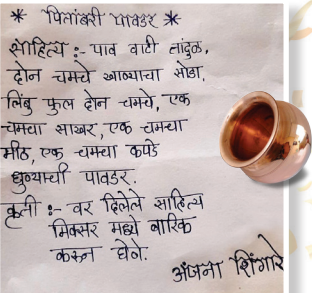 * पितांबरी पावडर *
साहित्य :- पाव वाटी तांदुळ,
दोन चमचे खाण्याचा सोडा,
लिंबु फुल दोन चमचे, एक
चमचा साखर, एक चमचा
मीठ, एक चमचा कपडे
धुण्याची पावडर.
कृती :- वर दिलेले साहित्य
मिक्सर मध्ये बारिक
करून घेणे.
अंजना शिंगारे